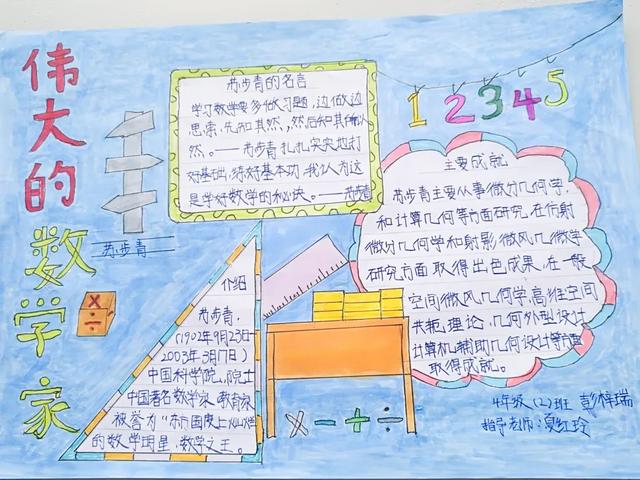 伟大的
数学家
苏步青的名言
学习数学要多做习题,边做边
思索,先知其然,然后知其所以
然。——苏步青扎扎实实地打
好基础,练好基本功,我认为这
是学好数学的秘诀。——苏步青
1 2 3 4 5
苏步青
× ÷
主要成就
苏步青主要从事微分几何学,
和计算几何等方面研究,在仿射
微分几何学和射影微风几微学
研究方面取得出色成果,在一般
空间微风几何学,高维空间
共轭理论,几何外型设计
计算机辅助几何设计等方面
取得成就。
介绍
苏步青,
(1902年9月23日—
2003年3月17日)
中国科学院,院士
中国著名数学家、教育家
被誉为“东方国度上灿烂
的数学明星、数学之王。
× − + ÷
4年级(2)班 彭梓瑞
指导老师:夏红玲